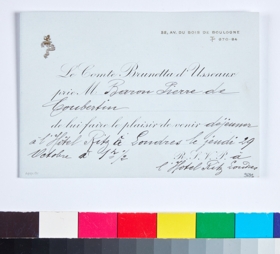 22, AV. DU BOIS DE BOULOGNE
Le Comte Brunetta d'Usseaux
prie M. Baron Pierre de
Coubertin
de lui faire le plaisir de venir déjeuner
à l'Hôtel Ritz à Londres le jeudi 29
Octobre à 1 1/2
R.S.V.P. à
l'Hotel Ritz Londres